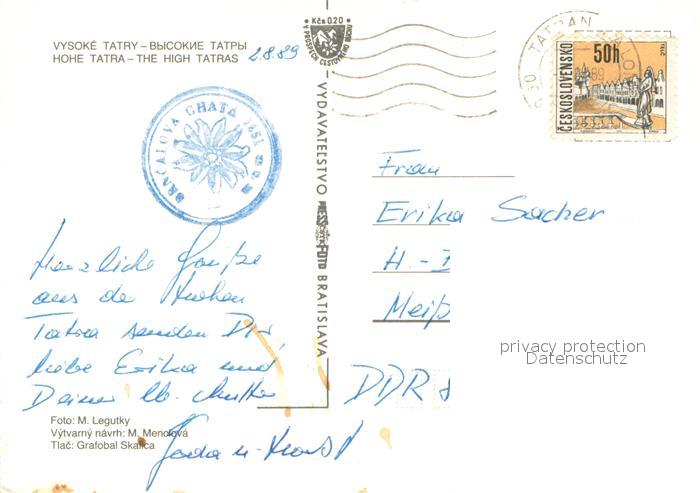 VYSOKÉ TATRY – ВЫСОКИЕ ТАТРЫ
HOHE TATRA – THE HIGH TATRAS
2.8.89
Kčs 0.20
V PROSPECH CESTOVNÉHO RUCHU
TATRAN
89
50h
ČESKOSLOVENSKO
TELČ
BRNČALOVA CHATA 1551 m
VYDAVATEĽSTVO PRESSFOTO BRATISLAVA
Frau
Erika Sacher
H. -
Meiß
DDR 8
Herzliche Grüße
aus der Hohen
Tatra senden Dir,
liebe Erika und
Deiner lb. Mutter
Gerda u. Horst
Foto: M. Legutky
Výtvarný návrh: M. Menclová
Tlač: Grafobal Skalica
privacy protection
Datenschutz